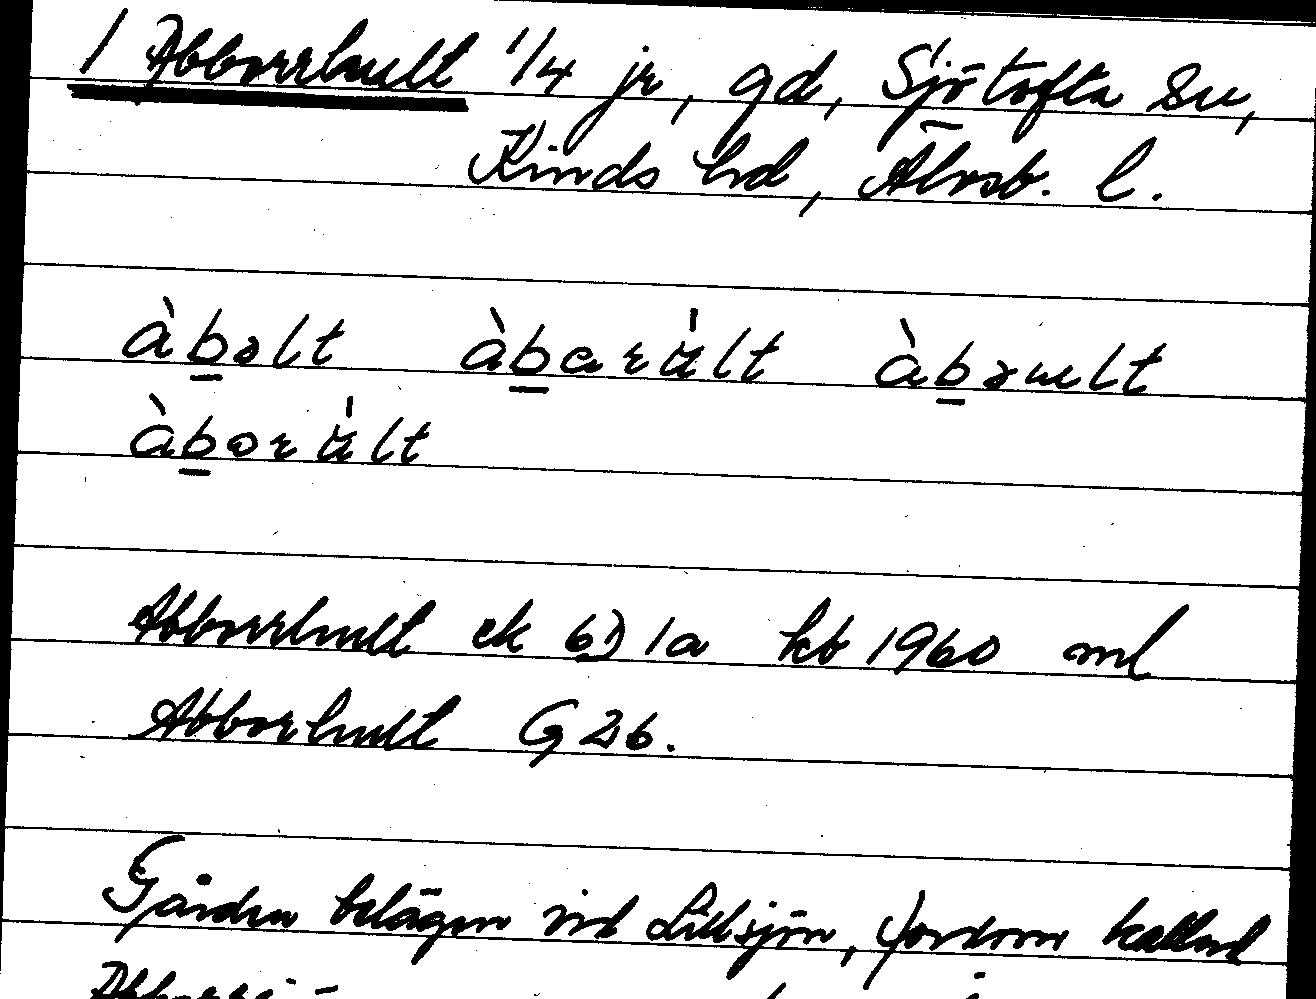 1 Abborrhult 1/4 jr, gd, Sjötofta sn,
Kinds hd, Älvsb. l.
àbəlt àbaru̇lt àbəult
àboru̇lt
Abborrhult ek 6D 1a kb 1960 ml
Abborhult G 26.
Gården belägen vid Lillsjön, fordom kallad